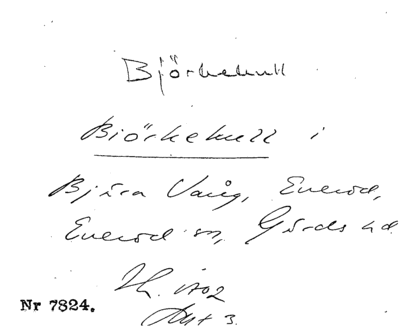 Björkekull
Björkekull i
Bjära Vång, Everöd,
Everöd sn, Gärds hd
1702
Nr 7824.